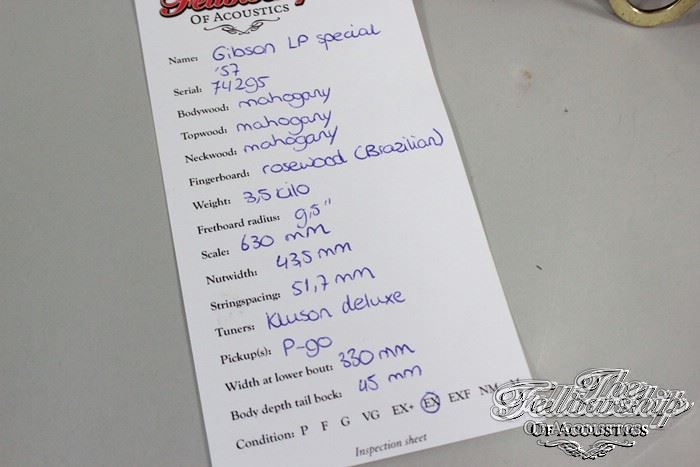 Fellowship
OF ACOUSTICS
Name: Gibson LP special
'57
Serial: 74295
Bodywood: mahogany
Topwood: mahogany
Neckwood: mahogany
Fingerboard: rosewood (Brazilian)
Weight: 3,5 kilo
Fretboard radius: 9,5"
Scale: 630 mm
Nutwidth: 43,5 mm
Stringspacing: 51,7 mm
Tuners: Kluson deluxe
Pickup(s): P-90
Width at lower bout: 330 mm
Body depth tail bock: 45 mm
Condition: P F G VG EX+ EX EXF NM M
Inspection sheet
The
Fellowship
OF ACOUSTICS